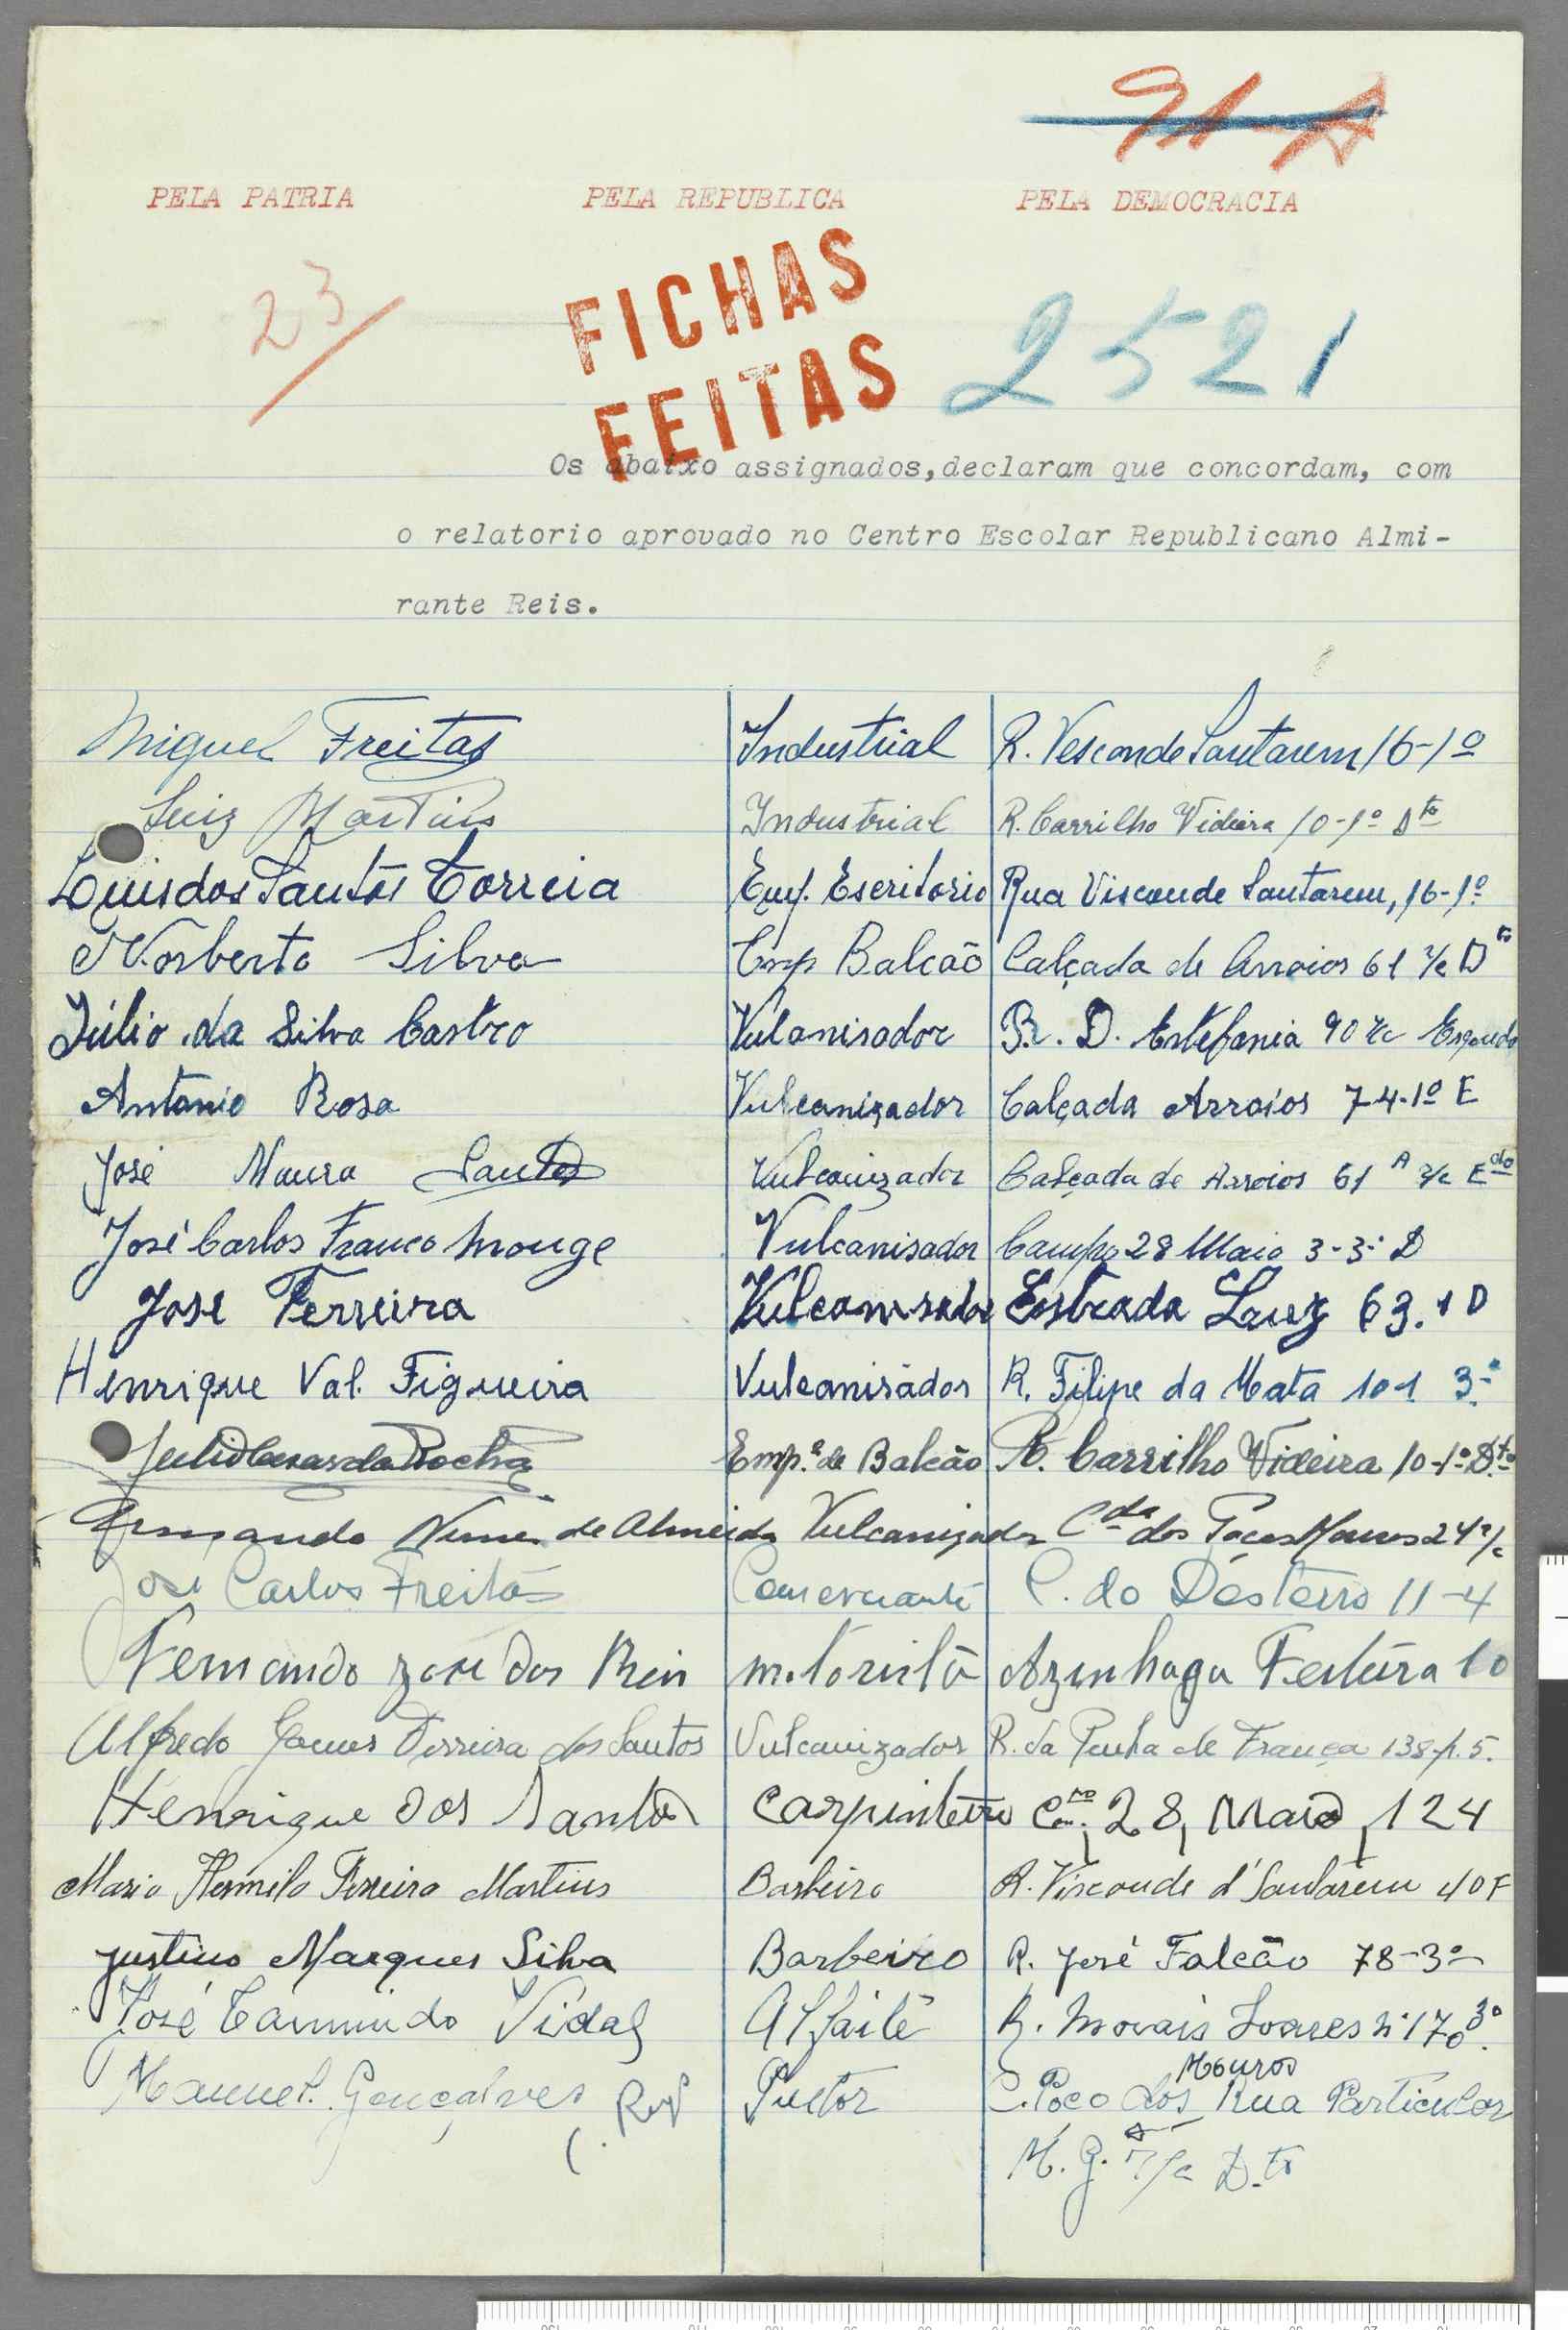 91-A
PELA PATRIA PELA REPUBLICA PELA DEMOCRACIA
23
FICHAS
FEITAS
2521
Os abaixo assignados, declaram que concordam, com
o relatorio aprovado no Centro Escolar Republicano Almi-
rante Reis.
Miguel Freitas Industrial R. Vesconde Santarem 16-1º
Luiz Martins Industrial R. Carrilho Videira 10-1º Dto
Luis dos Santos Correia Emp. Escritorio Rua Visconde Santarem, 16-1º
Norberto Silva Emp Balcão Calçada de Arroios 61 r/c Dto
Júlio da Silva Castro Vulanisador R. D. Estefania 90 r/c Esquerdo
Antonio Rosa Vulcanizador Calçada Arroios 74-1º E
José Moura Santos Vulcanizador Calçada de Arroios 61 A r/c Edo
José Carlos Franco Monge Vulcanisador Campo 28 Maio 3-3º D
José Ferreira Vulcanisador Estrada Luz 63. 1 D
Henrique Val. Figueira Vulcanisador R. Filipe da Mata 101 3º
Julio Cesar da Rocha Emp.º de Balcão R. Carrilho Videira 10-1º Dto
Armando Nunes de Almeida Vulcanizador Cda dos Poços Mouros 24 r/c
José Carlos Freitas C. do Desterro 11-4
Fernando José dos Reis motorista Azinhaga Feiteira 10
Alfredo Gomes Ferreira dos Santos Vulcanizador R. da Penha de França 138-p. 5.
Henrique dos Santos Carpinteiro 28, Maio, 124
Mario Hermilo Ferreira Martins Barbeiro R. Visconde d'Santarem 40 F
Justino Marques Silva Barbeiro R. José Falcão 78-3º
José Vidal Alfaite R. Morais Soares nº 170 3º
Manuel Gonçalves Pintor C. Poço dos Mouros Rua Particular
M. G. r/c D.to